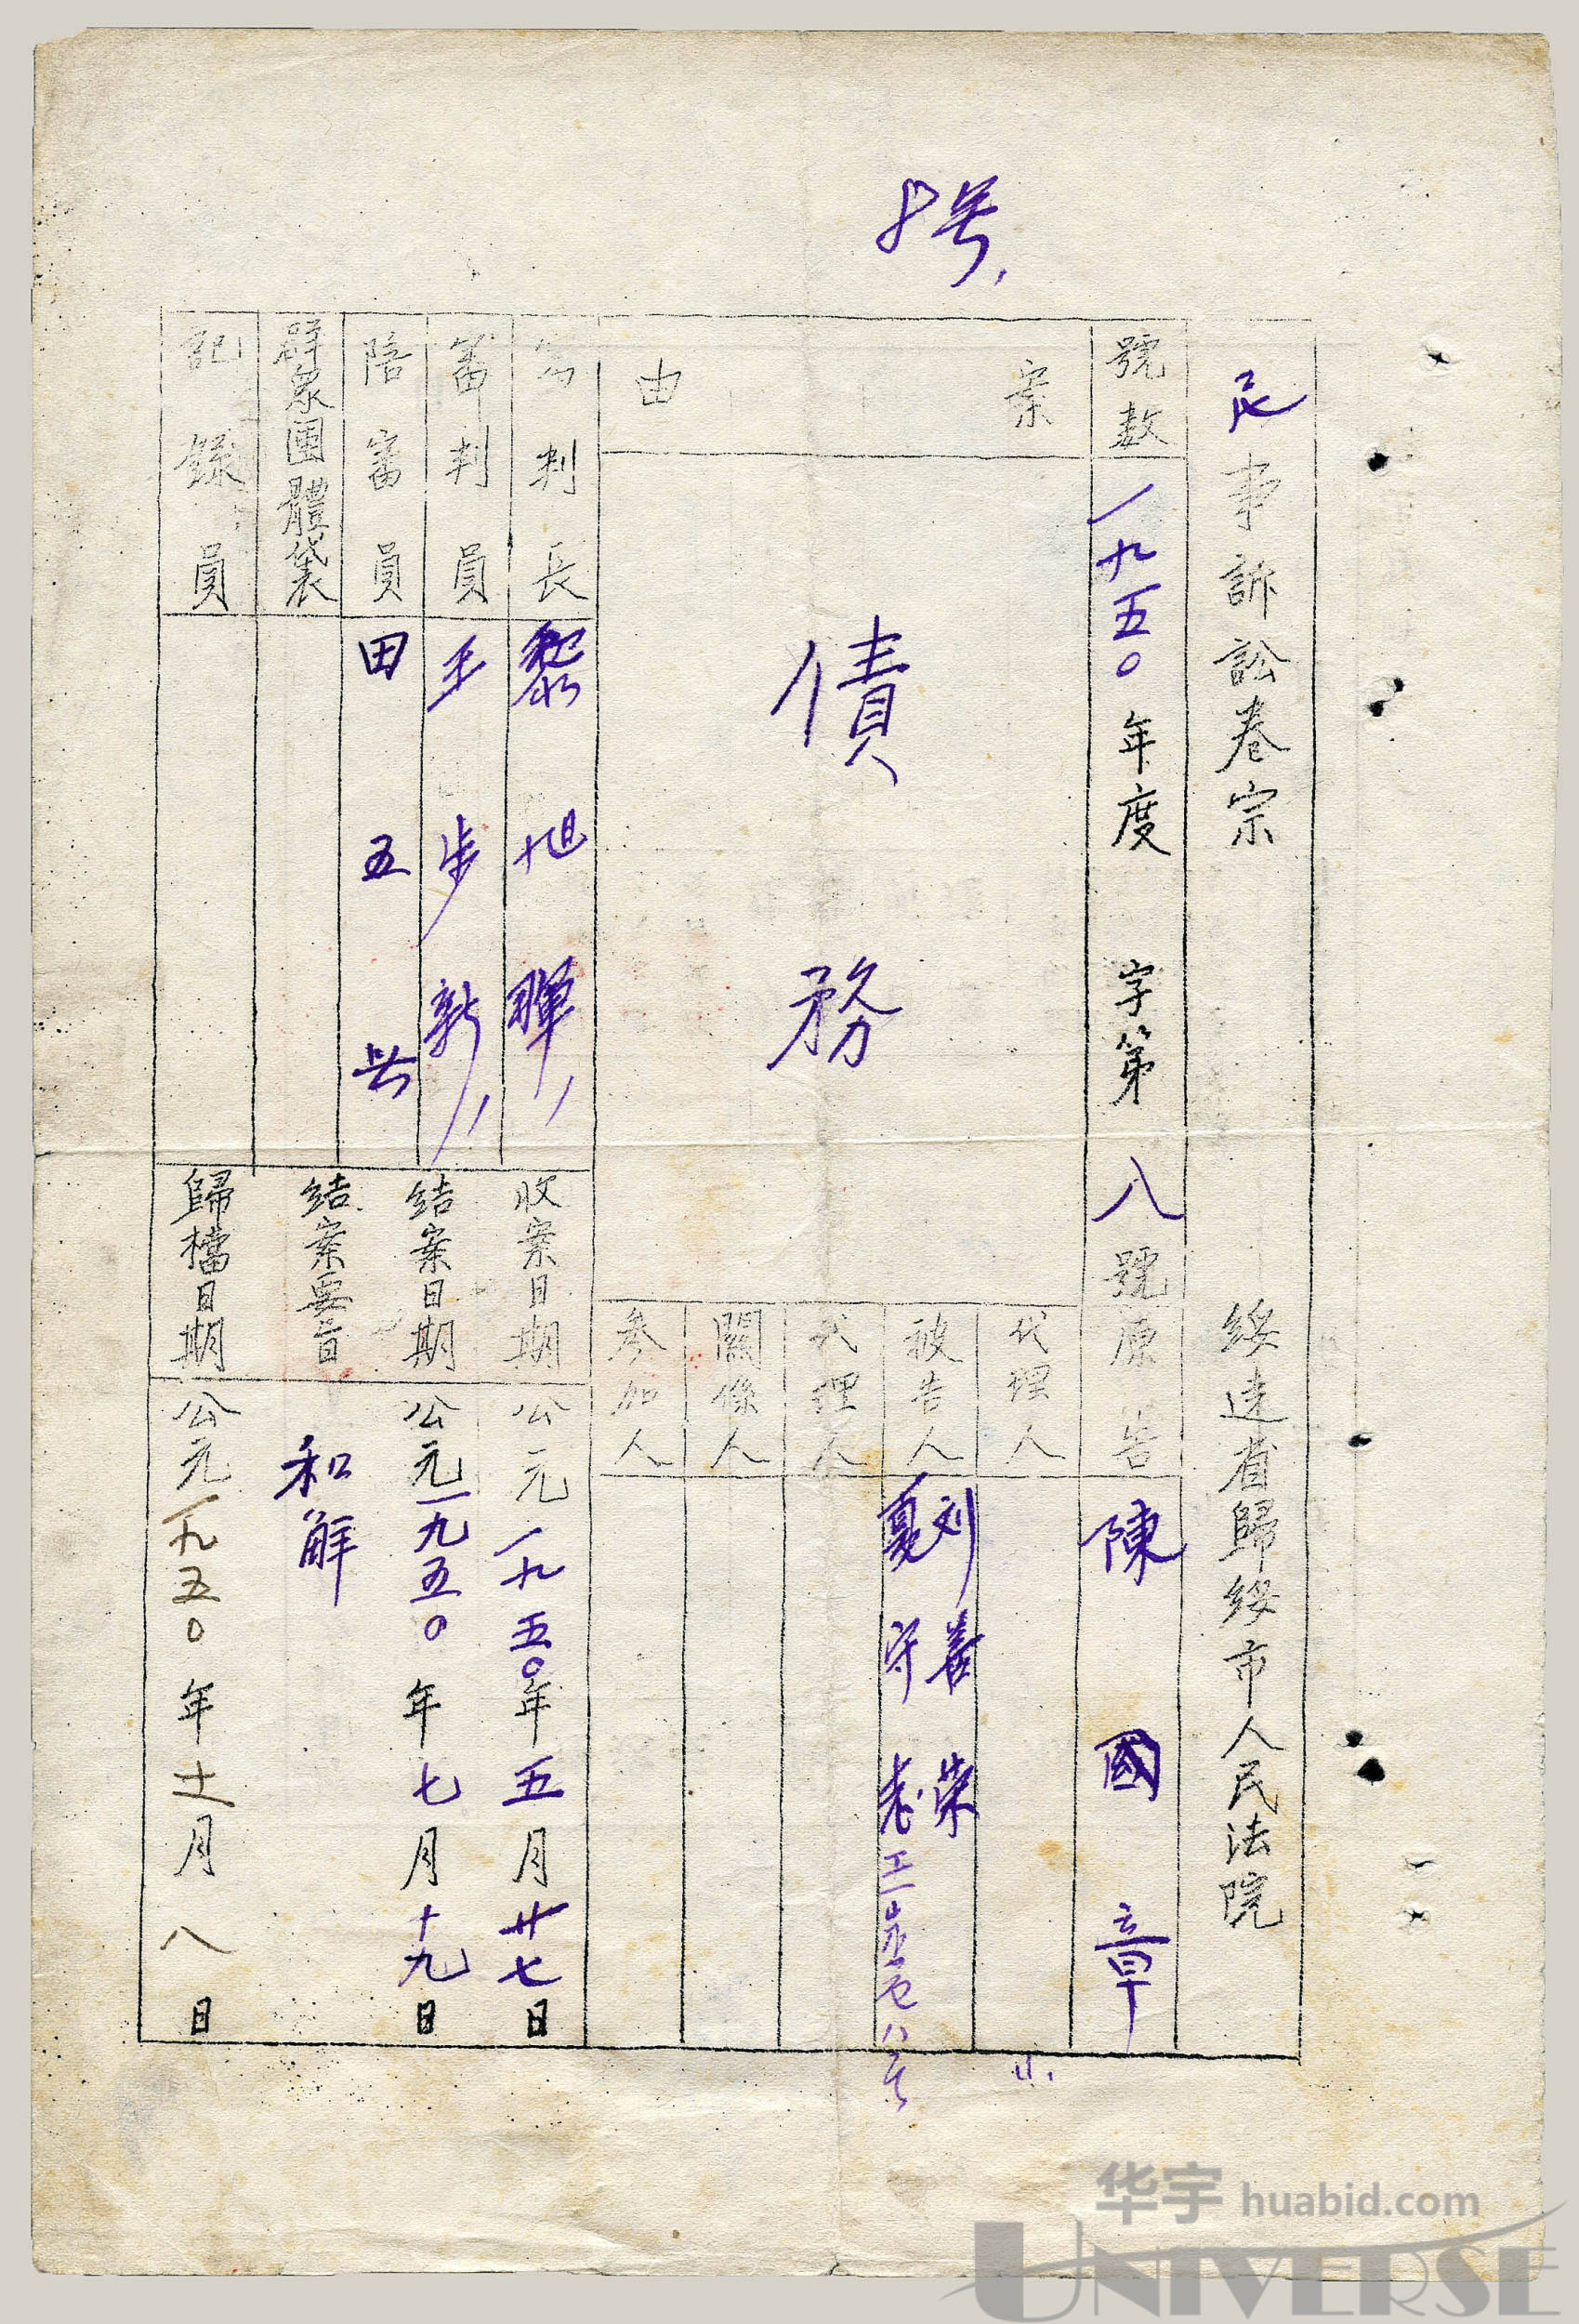 8号
民事訴訟卷宗 綏遠省歸綏市人民法院
號數 一九五〇年度 字第八號
原告 陳國章
代理人
被告人 刘善荣
夏守老
代理人
關係人
參加人
案由 債務
審判長 黎旭暉
審判員 王步新
陪審員 田五
群眾團體袋
記錄員
收案日期 公元一九五〇年五月廿七日
結案日期 公元一九五〇年七月十九日
結案要旨 和解
歸檔日期 公元一九五〇年十二月八日
华宇 huabid.com
UNIVERSE